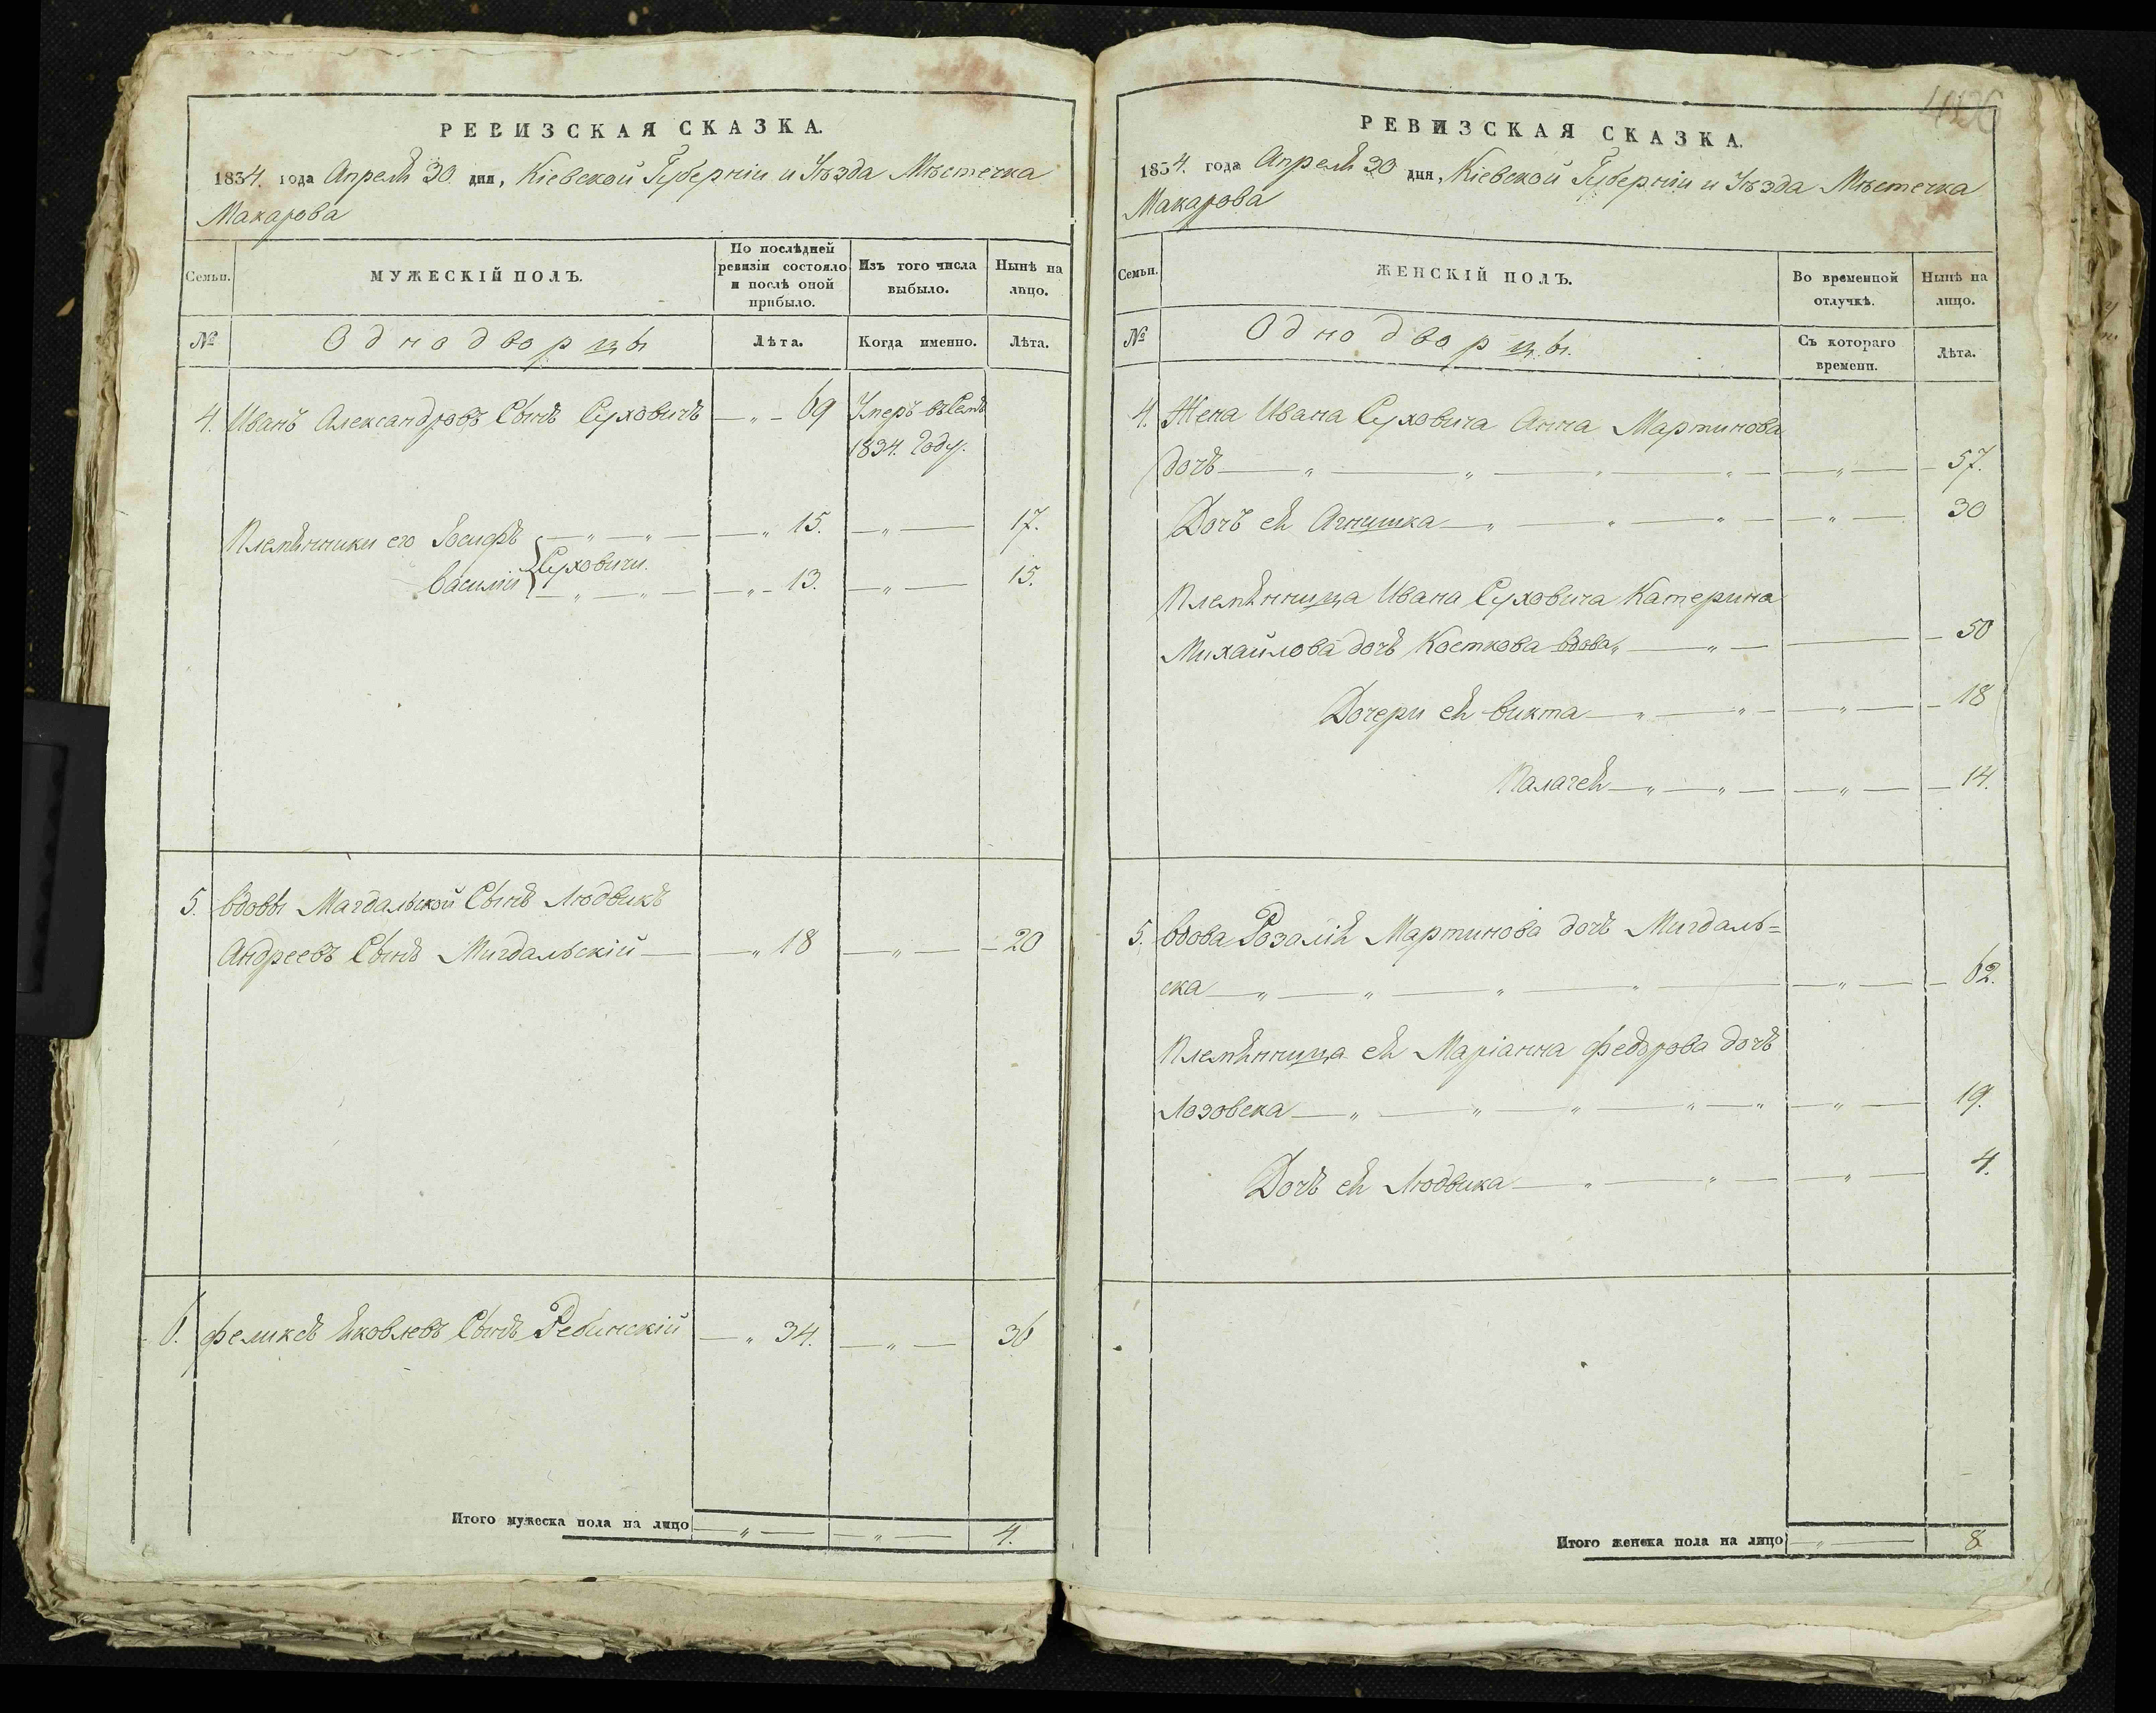 РЕВИЗСКАЯ СКАЗКА.
1834. года Апреля 30. дня, Кіевской Губерніи и Уѣзда Мѣстечка
Макарова
Семьи.
МУЖЕСКІЙ ПОЛЪ.
По послѣдней
ревизіи состояло
и послѣ оной
прибыло.
Изъ того числа
выбыло.
Нынѣ на
лицо.
№
Однодворцы
Лѣта.
Когда именно.
Лѣта.
4. Иванъ Александровъ Сынъ Суховичъ — „ — 69 Умеръ въ
1834. Году.
Племянники его Іосифъ — „ — „ — — „ 15. — „ — 17.
Суховичи.
Василій — „ — „ — — „ — 13. — „ — 15.
5. Вдовы Магдальской Сынъ Людвикъ
Андреевъ Сынъ Мигдальскій — — „ 18 — „ — — 20
6. Феликсъ Яковлевъ Сынъ Ребинскій — „ 34. — „ — 36
Итого мужеска пола на лицо — „ — — „ — 4.
РЕВИЗСКАЯ СКАЗКА.
1834. года Апреля 30 дня, Кіевской Губерніи и Уѣзда Мѣстечка
Макарова
Семьи.
ЖЕНСКІЙ ПОЛЪ.
Во временной
отлучкѣ.
Нынѣ на
лицо.
№
Однодворцы.
Съ котораго
времени.
Лѣта.
4. Жена Ивана Суховича Анна Мартинова
дочъ — „ — „ — „ — „ — — „ — — 57.
Дочъ ея Агнишка — „ — „ — „ — — „ — 30
Племянница Ивана Суховича Катерина
Михайлова дочъ Косткова вдова „ — „ — — — 50
Дочери ея Викта — „ — „ — — „ — — 18
Палагея — „ — „ — — „ — — 14.
5. Вдова Розалія Мартинова дочъ Мигдаль=
ска — „ — „ — „ — „ — — „ — — 62.
Племянница ея Маріанна Федорова дочъ
Лозовска — „ — „ — „ — „ — „ — „ — 19.
Дочъ ея Людвика — „ — „ — — „ — 4.
Итого женска пола на лицо — „ — 8.